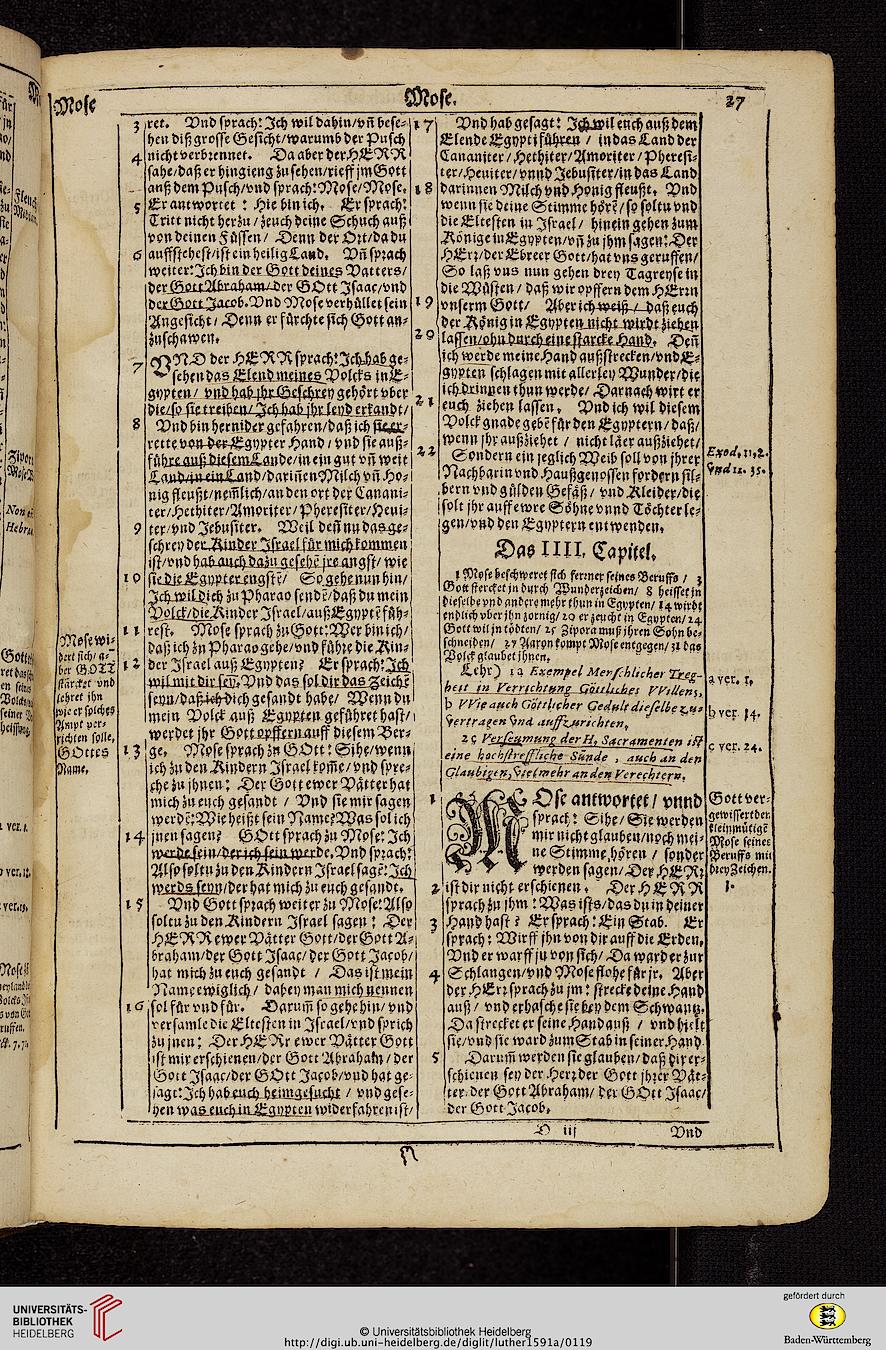 Mose
Mose.
27
3 ret. Vnd sprach: Ich wil dahin/vñ bese-
hen diß grosse Gesicht/warumb der Pusch
4 nicht verbrennet. Da aber der HERR
sahe/daß er hingieng zu sehen/rieff jm Gott
auß dem Pusch/vnd sprach: Mose/Mose.
5 Er antwortet: Hie bin ich. Er sprach:
Tritt nicht herzu/zeuch deine Schuch auß
von deinen Füssen/ Denn der Ort/da du
6 auffstehest/ist ein heilig Land. Vñ sprach
weiter: Ich bin der Gott deines Vatters/
der Gott Abraham/der GOtt Isaac/vnd
der Gott Jacob. Vnd Mose verhüllet sein
Angesicht/ Denn er fürchte sich Gott an-
zuschawen.
7 VND der HERR sprach: Ich hab ge-
sehen das Elend meines Volcks in E-
gypten/ vnd hab jhr Geschrey gehört vber
die/so sie treiben/ Ich hab jhr leyd erkandt/
8 Vnd bin hernider gefahren/daß ich sie er-
rette von der Egypter Hand/vnd sie auß-
führe auß diesem Lande/in ein gut vñ weit
Land/in ein Land/dariñen Milch vñ Ho-
nig fleußt/nemlich/an den ort der Canani-
ter/Hethiter/Amoriter/Pheresiter/Heui-
9 ter/vnd Jebusiter. Weil deñ nu das ge-
schrey der Kinder Israel für mich kommen
ist/vnd hab auch dazu gesehē jre angst/ wie
10 sie die Egypter engstē/ So gehe nun hin/
Ich wil dich zu Pharao sendē/daß du mein
Volck/die Kinder Israel/auß Egyptē füh-
11 rest. Mose sprach zu Gott: Wer bin ich/
daß ich zu Pharao gehe/vnd führe die Kin-
12 der Israel auß Egypten? Er sprach: Ich
wil mit dir sey. Vnd das sol dir das Zeichē
seyn/daß ich dich gesandt habe/ Wenn du
mein Volck auß Egypten geführet hast/
werdet jhr Gott opffern auff diesem Ber-
13 ge. Mose sprach zu GOtt: Sihe/wenn
ich zu den Kindern Israel kome/vnd spre-
che zu jhnen: Der Gott ewer Vätter hat
mich zu euch gesandt / Vnd sie mir sagen
werdē: Wie heißt sein Name? Was sol ich
14 jnen sagen? GOtt sprach zu Mose: Ich
werde sein/der ich sein werde. Vnd sprach:
Also soltu zu den Kindern Israel sagē: Ich
werds seyn/der hat mich zu euch gesandt.
15 Vnd Gott sprach weiter zu Mose: Also
soltu zu den Kindern Israel sagen: Der
HERR ewer Vätter Gott/der Gott A-
braham/der Gott Isaac/der Gott Jacob/
hat mich zu euch gesandt / Das ist mein
Name ewiglich/ dabey man mich nennen
16 sol für vnd für. Darum so gehe hin/vnd
versamle die Eltesten in Israel/vnd sprich
zu jnen: Der HERr ewer Vätter Gott
ist mir erschienen/der Gott Abraham/der
Gott Isaac/der GOtt Jacob/vnd hat ge-
sagt: Ich hab euch heimgesucht / vnd gese-
hen was euch in Egypten widerfahren ist/
Mose wi-
dert sich/ a-
ber GOTT
stärcket vnd
lehret ihn
wie er solches
Ampt ver-
richten solle,
GOttes
Name.
17 Vnd hab gesagt: Ich wil euch auß dem
Elende Egypti führen / in das Land der
Cananiter/Hethiter/Amoriter/Pheresi-
ter/Heuiter/vnnd Jebusiter/in das Land
18 darinnen Milch vnd Honig fleußt. Vnd
wenn sie deine Stimme hörē/so soltu vnd
die Eltesten in Israel/ hinein gehen zum
Könige in Egypten/vñ zu jhm sagen: Der
HErr/der Ebreer Gott/hat vns geruffen/
So laß vns nun gehen drey Tagreyse in
die Wüsten/ daß wir opffern dem HErrn
19 vnserm Gott/ Aber ich weiß/ daß euch
der König in Egypten nicht wirdt ziehen
20 lassen/ohn durch eine starcke Hand. Deñ
ich werde meine Hand außstrecken/vnd E-
gypten schlagen mit allerley Wunder/die
ich drinnen thun werde/ Darnach wirt er
21 euch ziehen lassen. Vnd ich wil diesem
Volck gnade gebē für den Egyptern/daß/
wenn jhr außziehet / nicht läer außziehet/
22 Sondern ein jeglich Weib soll von jhrer
Nachbarin vnd Haußgenossen fordern sil-
bern vnd gülden Gefäß/ vnd Kleider/die
solt jhr auff ewre Söhne vnnd Töchter le-
gen/vnd den Egyptern entwenden.
Exod. 11, 2.
Vnd 12. 35.
Das IIII. Capitel.
1 Mose beschweret sich ferrner seines Beruffs / 3
Gott stercket jn durch Wunderzeichen/ 8 heisset jn
dieselbe vnd andere mehr thun in Egypten/ 14 wirdt
endlich vber jhn zornig/ 20 er zeucht in Egypten/ 24
Gott wil jn tödten/ 25 Zipora muß jhren Sohn be-
schneiden/ 27 Aaron kompt Mose entgegen/ 31 das
Volck glaubet jhnen.
Lehr) 1 a Exempel Menschlicher Treg-
heit in Verrichtung Göttliches VVillens,
b VVie auch Göttlicher Gedult dieselbe zu-
vertragen Vnd auffzurichten,
2 c Verseumung der H. Sacramenten ist
eine hochstreffliche Sünde , auch an den
Glaubigen, Viel mehr an den Verechtern.
a ver. 1.
b ver. 14.
c ver. 24.
1 MOse antwortet / vnnd
sprach: Sihe/ Sie werden
mir nicht glauben/noch mei-
ne Stimme hören / sonder
werden sagen/ Der HERr
2 ist dir nicht erschienen. Der HERR
sprach zu jhm: Was ists/das du in deiner
3 Hand hast? Er sprach: Ein Stab. Er
sprach: Wirff jhn von dir auff die Erden.
Vnd er warff jn von sich/ Da ward er zur
4 Schlangen/vnd Mose flohe für jr. Aber
der HErr sprach zu jm: strecke deine Hand
auß / vnd erhasche sie bey dem Schwantz.
Da strecket er seine Hand auß / vnd hielt
sie/vnd sie ward zum Stab in seiner Hand.
5 Darum werden sie glauben/daß dir er-
schienen sey der Herr der Gott jhrer Vät-
ter/der Gott Abraham/ der GOtt Isaac/
der Gott Jacob.
Gott ver-
gewissert den
kleinmütige
Mose seines
Beruffs mit
drey Zeichen.
1.
D iij
Vnd
UNIVERSITÄTS-
BIBLIOTHEK
HEIDELBERG
© Universitätsbibliothek Heidelberg
http://digi.ub.uni-heidelberg.de/diglit/luther1591a/0119
gefördert durch
Baden-Württemberg